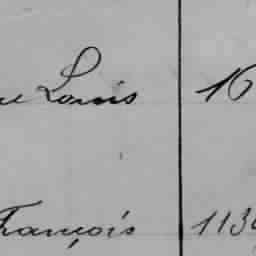 Louis 16
François 113